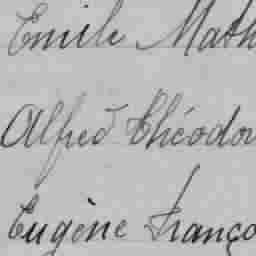 Emile Math
Alfred Théodor
Eugène Franço